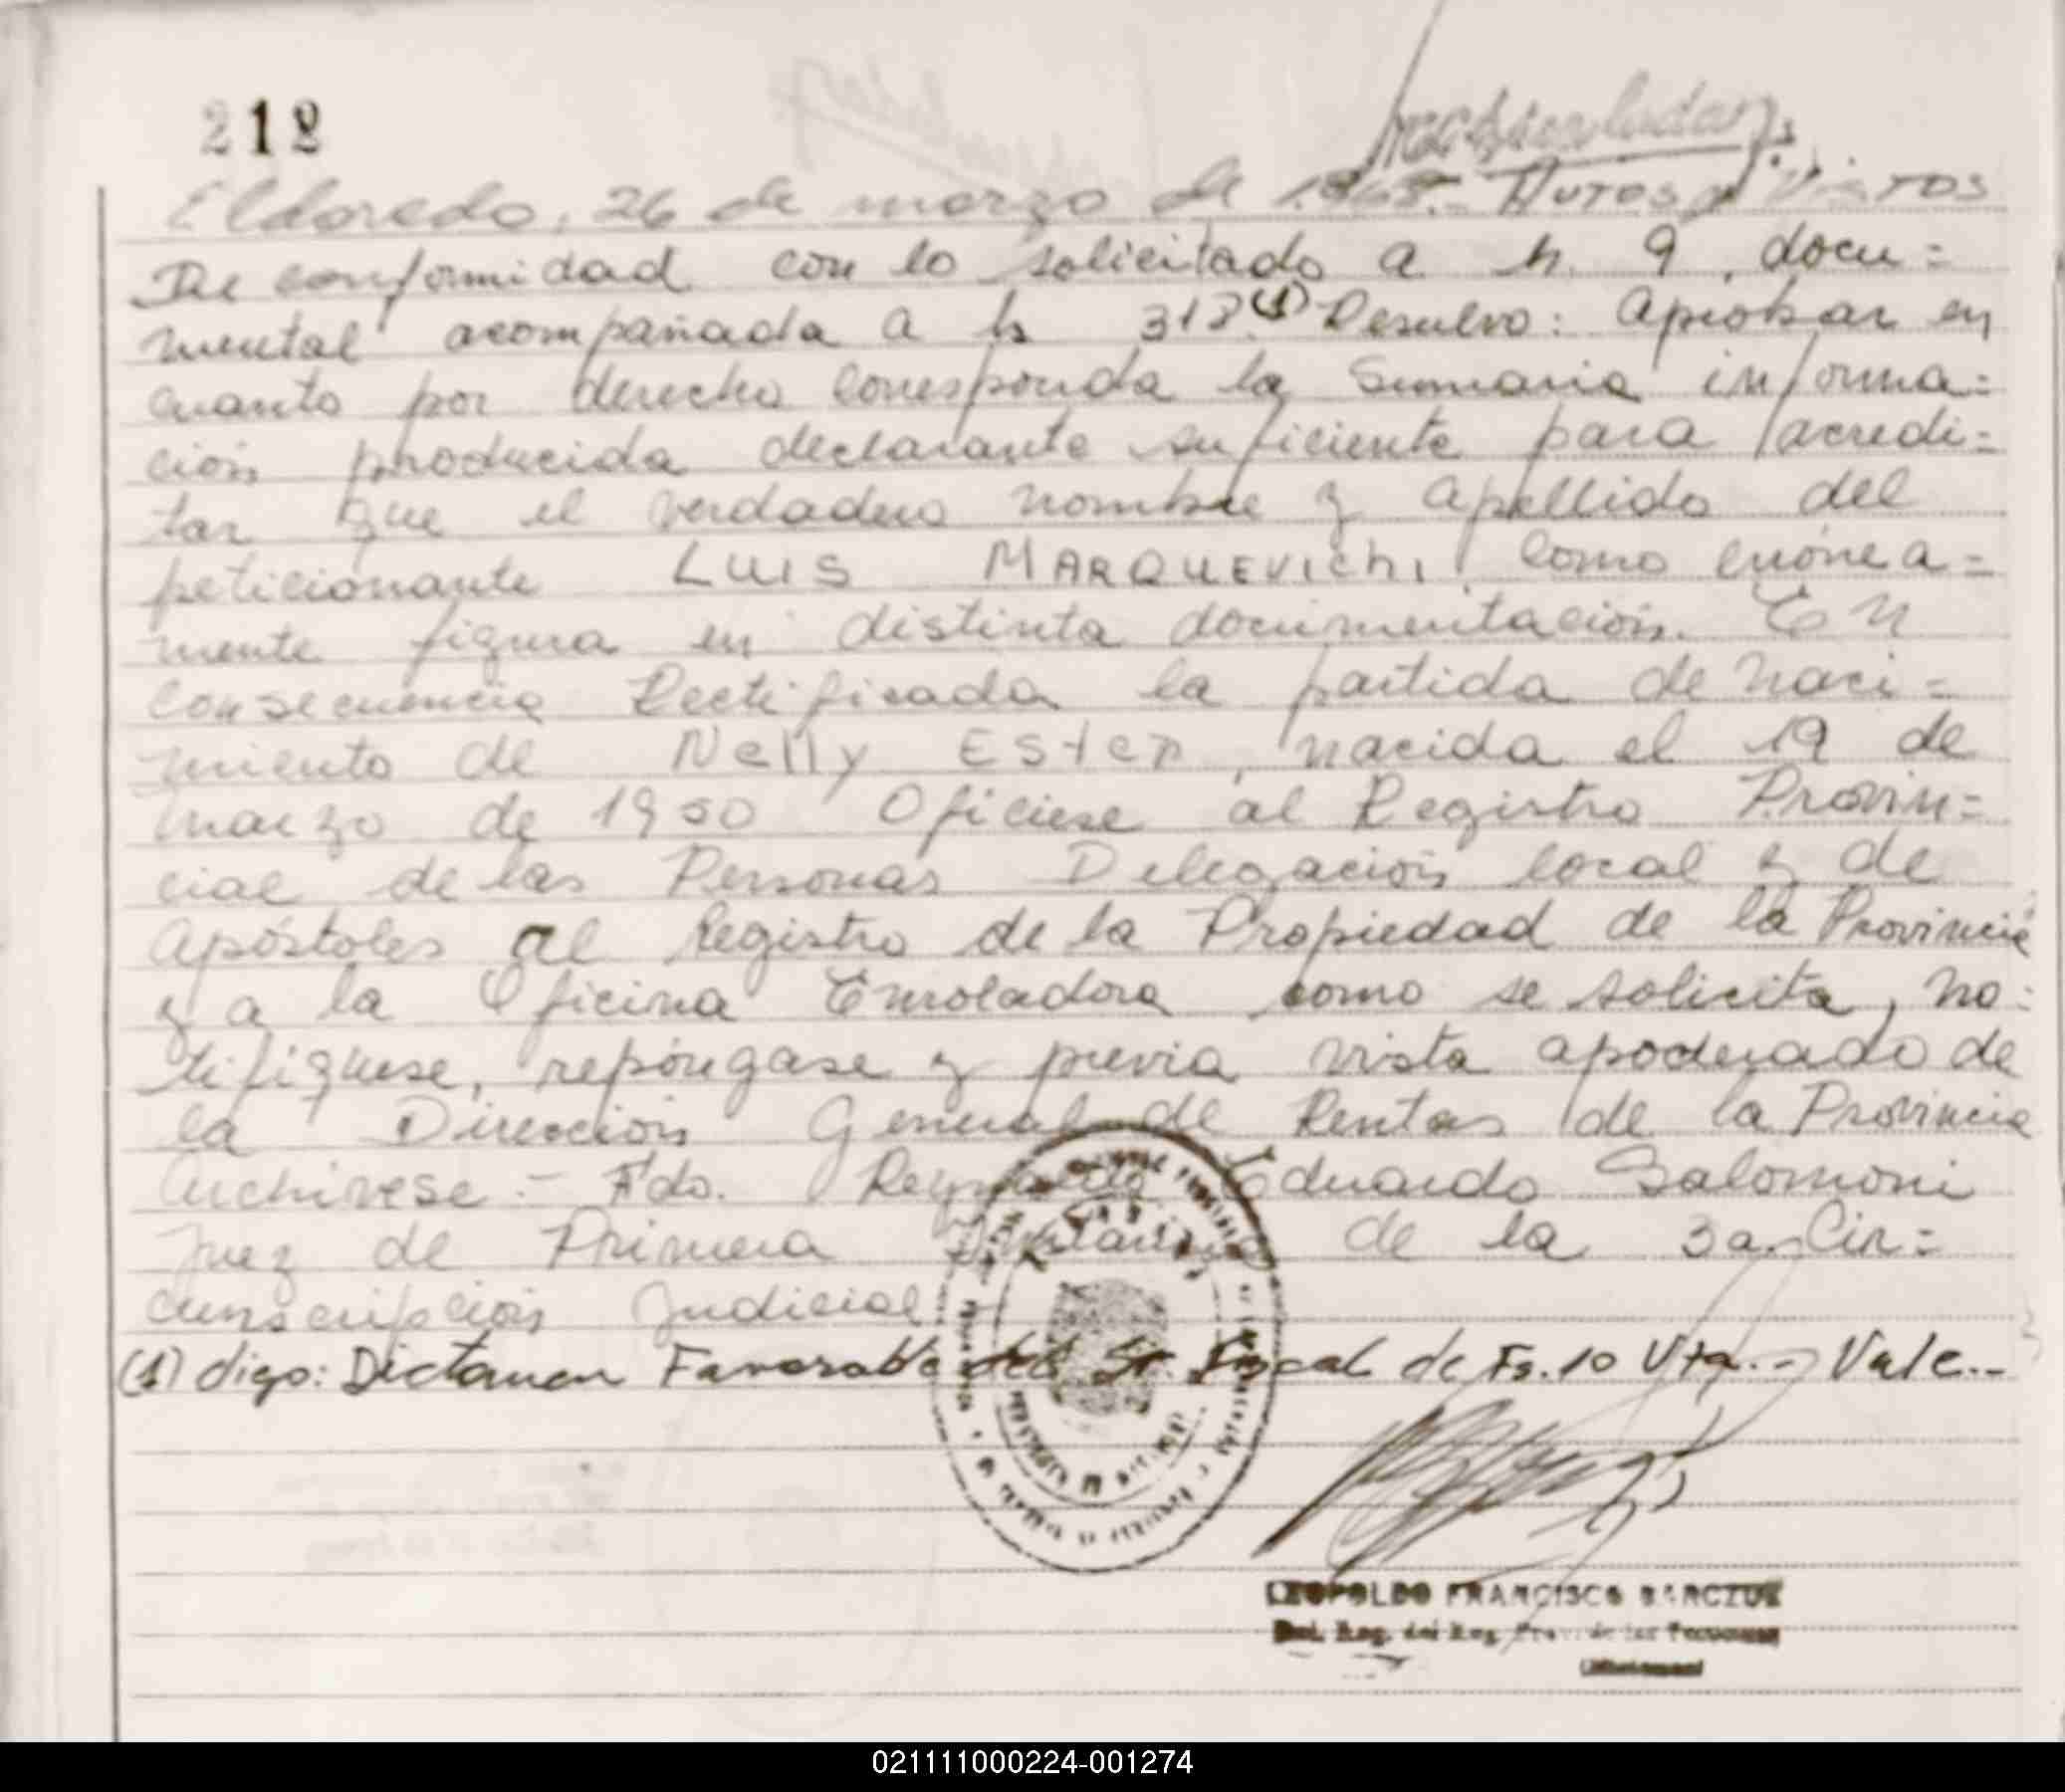 212
Eldorado, 26 de marzo de 1.968.- Autos y Vistos
De conformidad con lo solicitado a fs. 9, docu=
mental acompañada a fs 318 (1) Resuelvo: Aprobar en
cuanto por derecho corresponda la Sumaria informa=
ción producida declarante suficiente para acredi=
tar que el verdadero nombre y apellido del
peticionante LUIS MARQUEVICHI, como errónea=
mente figura en distinta documentación. En
consecuencia Rectificada la partida de naci=
miento de Nelly Ester, nacida el 19 de
marzo de 1950 Oficiese al Registro Provin=
cial de las Personas Delegación local y de
Apóstoles al Registro de la Propiedad de la Provincia
y a la Oficina Enroladora como se solicita, no=
tifiquese, repóngase y previa vista apoderado de
la Dirección General de Rentas de la Provincia
Archivese.- Fdo. Reynaldo Eduardo Salomoni
Juez de Primera Instancia de la 3a. Cir=
cunscripción Judicial
(1) digo: Dictamen Favorable del Sr. Fiscal de Fs. 10 Vta.- Vale.-
LEOPOLDO FRANCISCO BARCZUK
021111000224-001274